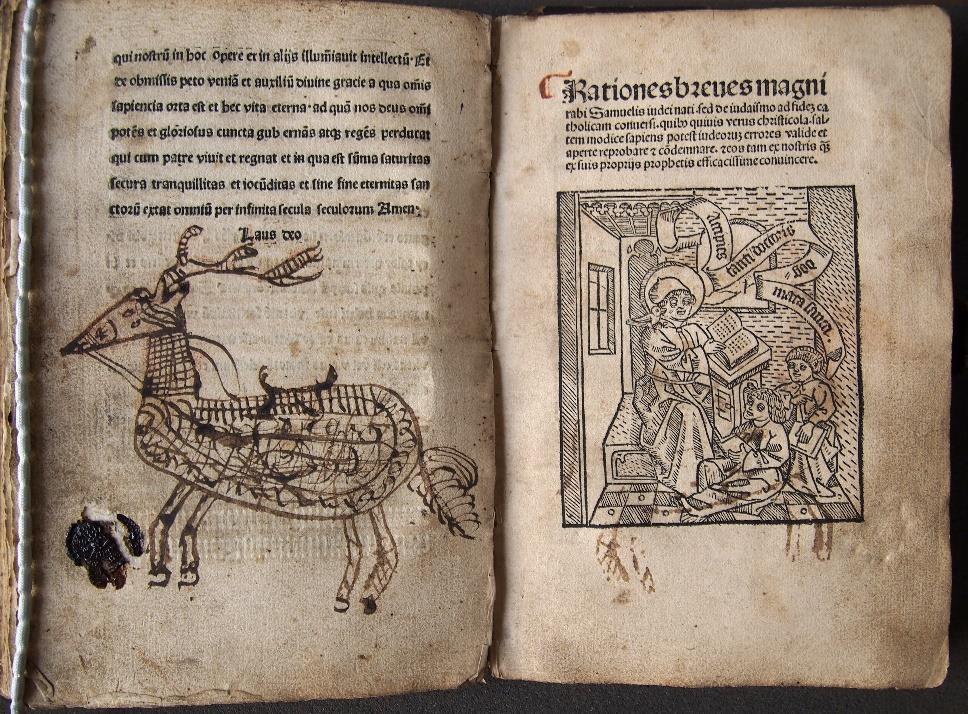 qui nostrũ in hoc opere et in alijs illumĩauit intellectũ· Et
de obmissis peto veniã et auxiliũ diuine gracie a qua om̃is
sapiencia orta est et hec vita eterna· ad quã nos deus om̃i
potẽs et glõriosus cuncta gub ernãs atqꝫ regẽs perducat
qui cum patre viuit et regnat et in qua est sũma saturitas
secura tranquillitas et iocũditas et sine fine eternitas san
ctorũ extat omniũ per infinita secula seculorum Amen·
Laus deo
Rationes breues magni
rabi Samuelis iudei nati sed de iudaismo ad fidez ca
tholicam conuersi. quibꝰ quiuis verus christicola. sal-
tem modice sapiens potest iudeoruꝫ errores valide et
aperte reprobare ⁊ cõdennare. ⁊ eos tam ex nostris qꝫ
ex suis proprijs prophetis efficacissime conuincere.
Accipies
tanti doctoris
dog
mata sancta